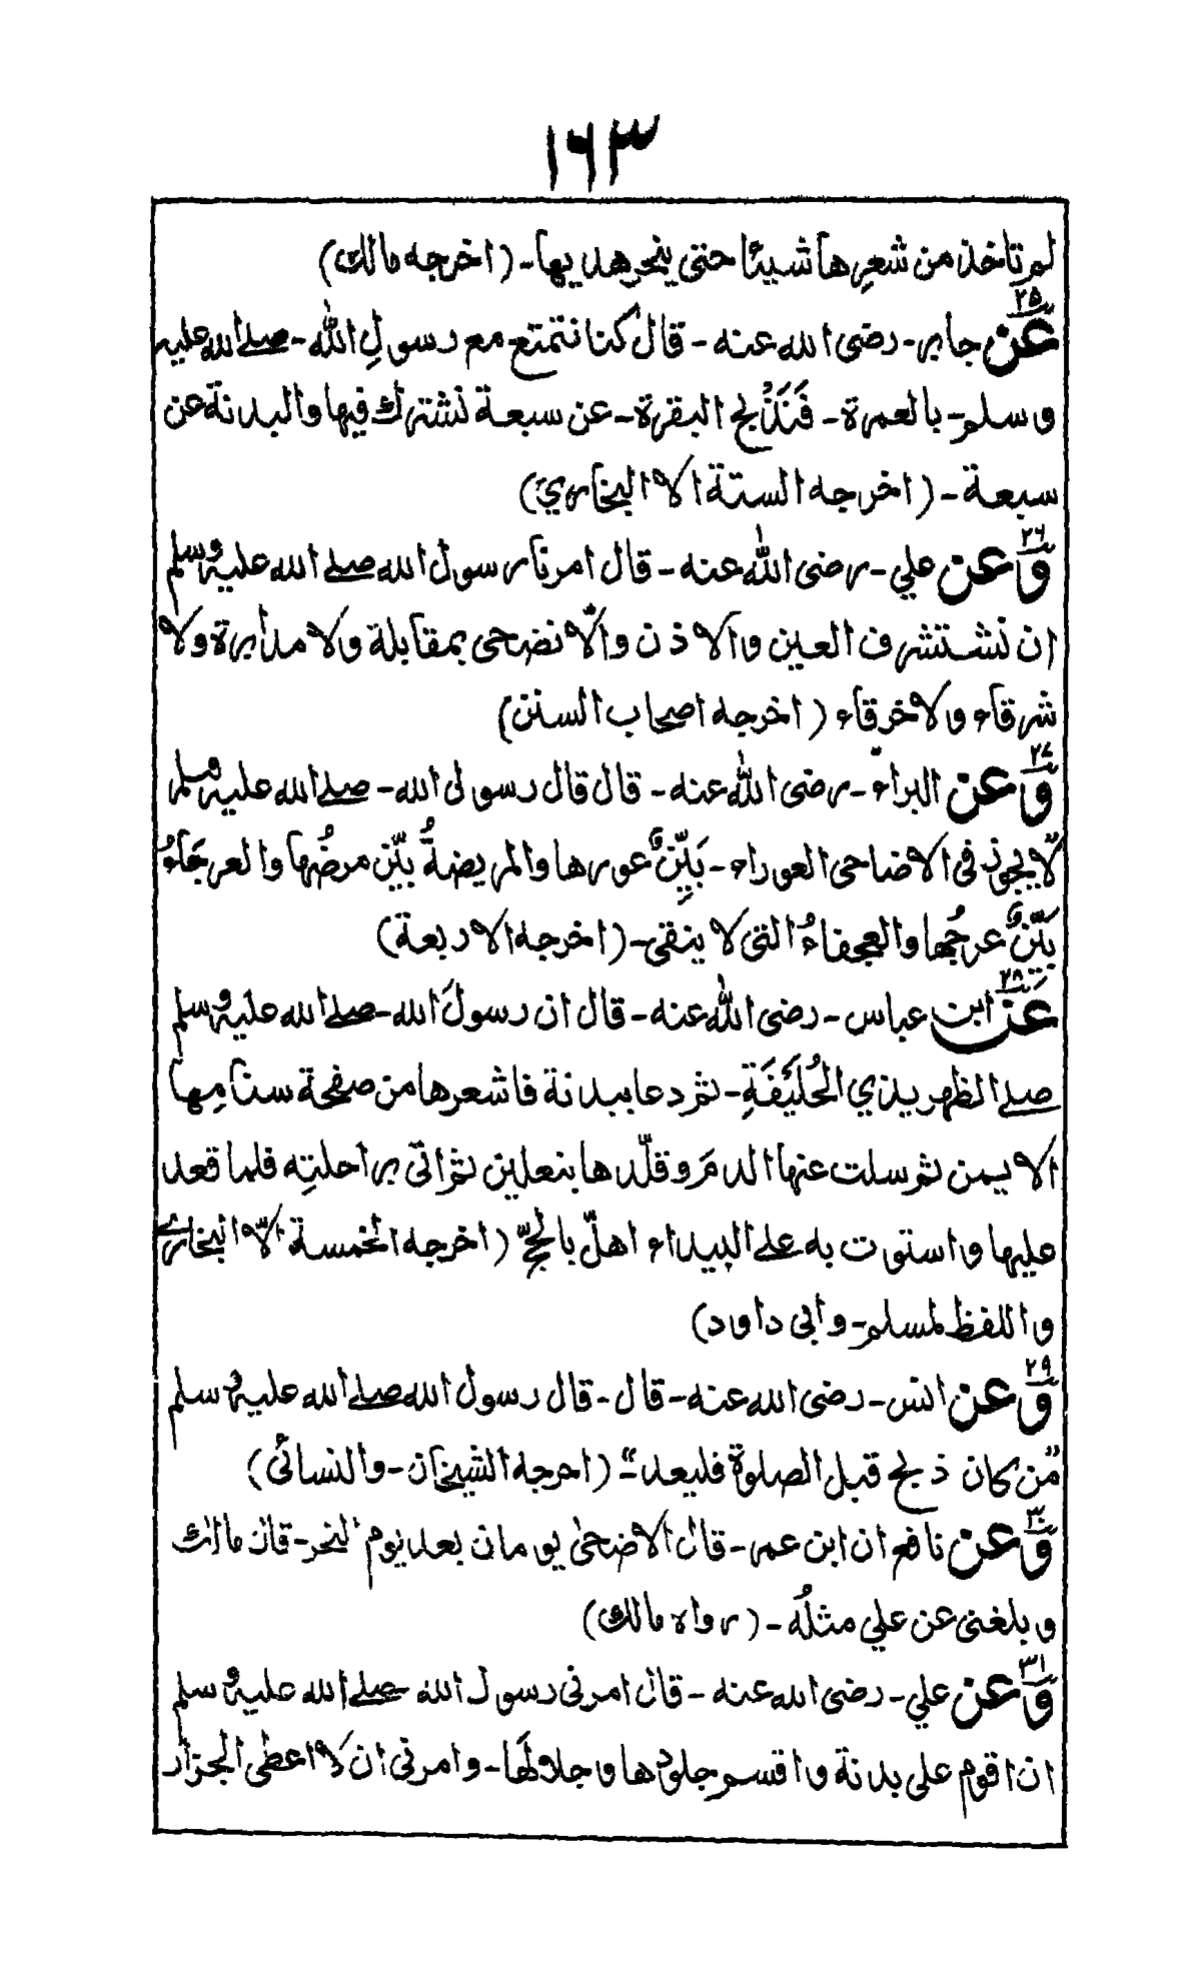 ١٦٣
لم تاخذ من شعرِها شيئا حتى ينحر هديها۔ (اخرجه مالك)
٢٥
عن جابر۔ رضى الله عنه۔ قال كنا نتمتع مع رسولِ الله۔ صلے الله عليه
وسلم۔ بالعمرة۔ فَنَذْبح البقرة۔ عن سبعة نشترك فيها والبدنة عن
سبعة۔ (اخرجه الستة الا البخاري)
٢٦
وعن علي۔ رضى الله عنه۔ قال امرنا رسول الله صلے الله عليه وسلم
ان نستشرف العين والاذن والّا نضحى بمقابلة ولا مدابرة ولا
شرقاء ولا خرقاء (اخرجه اصحاب السنن)
٢٧
وعن البراء۔ رضى الله عنه۔ قال قال رسول الله۔ صلے الله عليه وسلم
لا يجوز فى الاضاحى العوراء۔ بَيِّنٌ عورها والمريضةُ بيِّن مرضُها والعرجَاءُ
بَيِّنٌ عرجُها والعجفاءُ التى لا ينقى۔ (اخرجه الاربعة)
٢٨
عن ابن عباس۔ رضى الله عنه۔ قال ان رسولَ الله۔ صلے الله عليه وسلم
صلے الظهر بذي الحُلَيَفَةِ۔ ثم دعا ببدنة فاشعرها من صفحة سنامِها
الايمن ثم سلت عنها الدمَ وقلّدها بنعلين ثم اتى براحلتِه فلما قعد
عليها واستوت به علے البيداء اهلّ بالحجّ (اخرجه الخمسة الّا البخارے
واللفظ لمسلم۔ وابى داود)
٢٩
وعن انس۔ رضى الله عنه۔ قال۔ قال رسول الله صلے الله عليه وسلم
من كان ذبح قبل الصلوة فليعد۔ (اخرجه الشيخان۔ والنسائى)
٣٠
وعن نافع ان ابن عمر۔ قال الاضحٰى يومان بعد يوم النحر۔ قال مالك
وبلغنى عن علي مثلُه۔ (رواه مالك)
٣١
وعن علي۔ رضى الله عنه۔ قال امرنى رسول الله صلے الله عليه وسلم
ان اقوم على بدنة واقسم جلودها وجلالَها۔ وامرنى ان لا اعطى الجزار